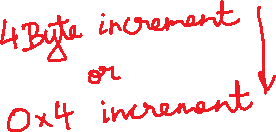 4Byte increment
or
0x4 increment